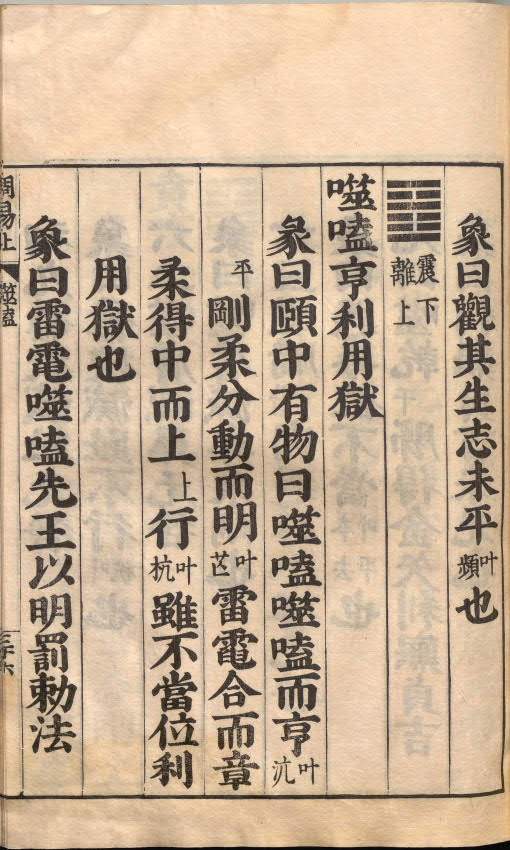 象曰觀其生志未平叶頻也
震下離上
噬嗑亨利用獄
彖曰頤中有物曰噬嗑噬嗑而亨叶沆
平剛柔分動而明叶芒雷電合而章
柔得中而上上行叶杭雖不當位利
用獄也
象曰雷電噬嗑先王以明罰勅法
周易上 噬嗑